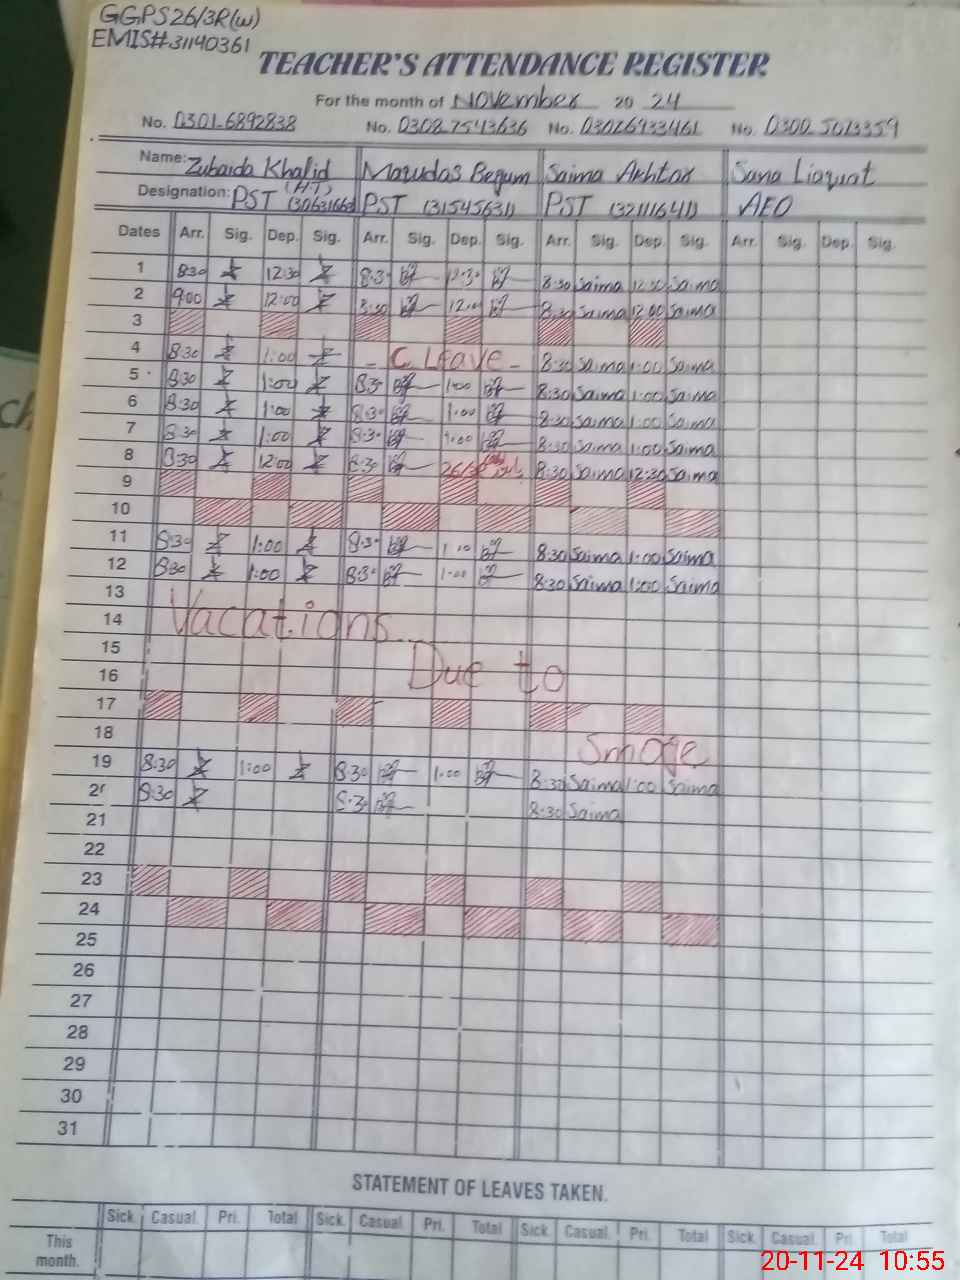 GGPS26/3R(W)
EMIS#31140361
TEACHER'S ATTENDANCE REGISTER
For the month of November 2024
No. 0301-6892838 No. 0308-7543636 No. 03026933461 No.
Name: Zubaida Khalid Begum Saima Akhtar Sana Liaquat
Designation: PST (HT) PST (31545631) PST (32111641) AEO
Dates Arr. Sig. Dep. Sig. Arr. Sig. Dep. Sig. Arr. Sig. Dep. Sig. Arr. Sig. Dep. Sig.
1 8:30 12:30 8:30 12:30 8:30 Saima 12:30 Saima
2 9:00 12:00 8:30 12:00 8:30 Saima 12:00 Saima
3
4 8:30 1:00 C. Leave 8:30 Saima 1:00 Saima
5 8:30 1:00 8:30 1:00 8:30 Saima 1:00 Saima
6 8:30 1:00 8:30 1:00 8:30 Saima 1:00 Saima
7 8:30 1:00 8:30 1:00 8:30 Saima 1:00 Saima
8 8:30 12:00 8:30 8:30 Saima 12:30 Saima
9
10
11 8:30 1:00 8:30 1:00 8:30 Saima 1:00 Saima
12 8:30 1:00 8:30 1:00 8:30 Saima 1:00 Saima
13
14 Vacations
15
16 Due to
17
18 Smoge
19 8:30 1:00 8:30 1:00 8:30 Saima 1:00 Saima
20 8:30 8:30 8:30 Saima
21
22
23
24
25
26
27
28
29
30
31
STATEMENT OF LEAVES TAKEN.
Sick. Casual. Pri. Total Sick. Casual Pri. Total Sick. Casual. Pri. Total Sick. Casual. Pri. Total
This
month.
20-11-24 10:55